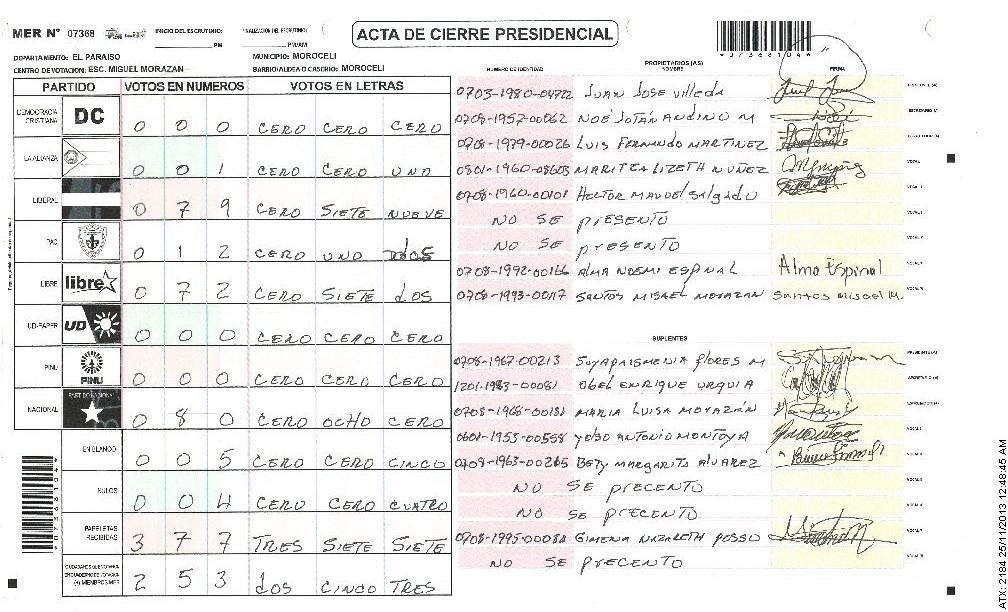 MER Nº 07368 INICIO DEL ESCRUTINIO: PM FINALIZACION DEL ESCRUTINIO: PM/AM
ACTA DE CIERRE PRESIDENCIAL
DEPARTAMENTO: EL PARAISO MUNICIPIO: MOROCELI
CENTRO DE VOTACION: ESC. MIGUEL MORAZAN BARRIO/ALDEA O CASERIO: MOROCELI
PARTIDO VOTOS EN NUMEROS VOTOS EN LETRAS
DEMOCRACIA CRISTIANA DC 0 0 0 CERO CERO CERO
LA ALIANZA 0 0 1 CERO CERO UNO
LIBERAL 0 7 9 CERO SIETE NUEVE
PAC 0 1 2 CERO UNO DOS
LIBRE libre 0 7 2 CERO SIETE DOS
UD-FAPER UD 0 0 0 CERO CERO CERO
PINU PINU 0 0 0 CERO CERO CERO
NACIONAL PARTIDO NACIONAL 0 8 0 CERO OCHO CERO
EN BLANCO 0 0 5 CERO CERO CINCO
NULOS 0 0 4 CERO CERO CUATRO
PAPELETAS RECIBIDAS 3 7 7 TRES SIETE SIETE
(+) MIEMBROS MER 2 5 3 DOS CINCO TRES
NUMERO DE IDENTIDAD PROPIETARIOS (AS) NOMBRE FIRMA
0703-1980-04722 JUAN JOSE VILLEDA
0708-1957-00062 NOÉ JOTÁN ANDINO M
0708-1979-00026 LUIS FERNANDO MARTINEZ
0801-1960-03603 MARITZA LIZETH NUÑEZ
0708-1960-00101 HECTOR MANUEL SALGADO
NO SE PRESENTO
NO SE PRESENTO
0708-1992-00166 ALMA NOEMI ESPINAL Alma Espinal
0708-1993-00117 SANTOS MISAEL MORAZAN Santos Misael M.
SUPLENTES
0708-1967-00213 FLORES M
1201-1983-00081 OBEL ENRIQUE URQUIA
0708-1968-00181 MARIA LUISA MORAZÁN
0601-1953-00558 ANTONIO MONTOYA
0709-1963-00265 BETY MARGARITA ALVAREZ
NO SE PRECENTO
NO SE PRECENTO
0708-1995-00088 GIMENA NAZARETH POSSO
NO SE PRECENTO
ATX: 2184 25/11/2013 12:48:45 AM